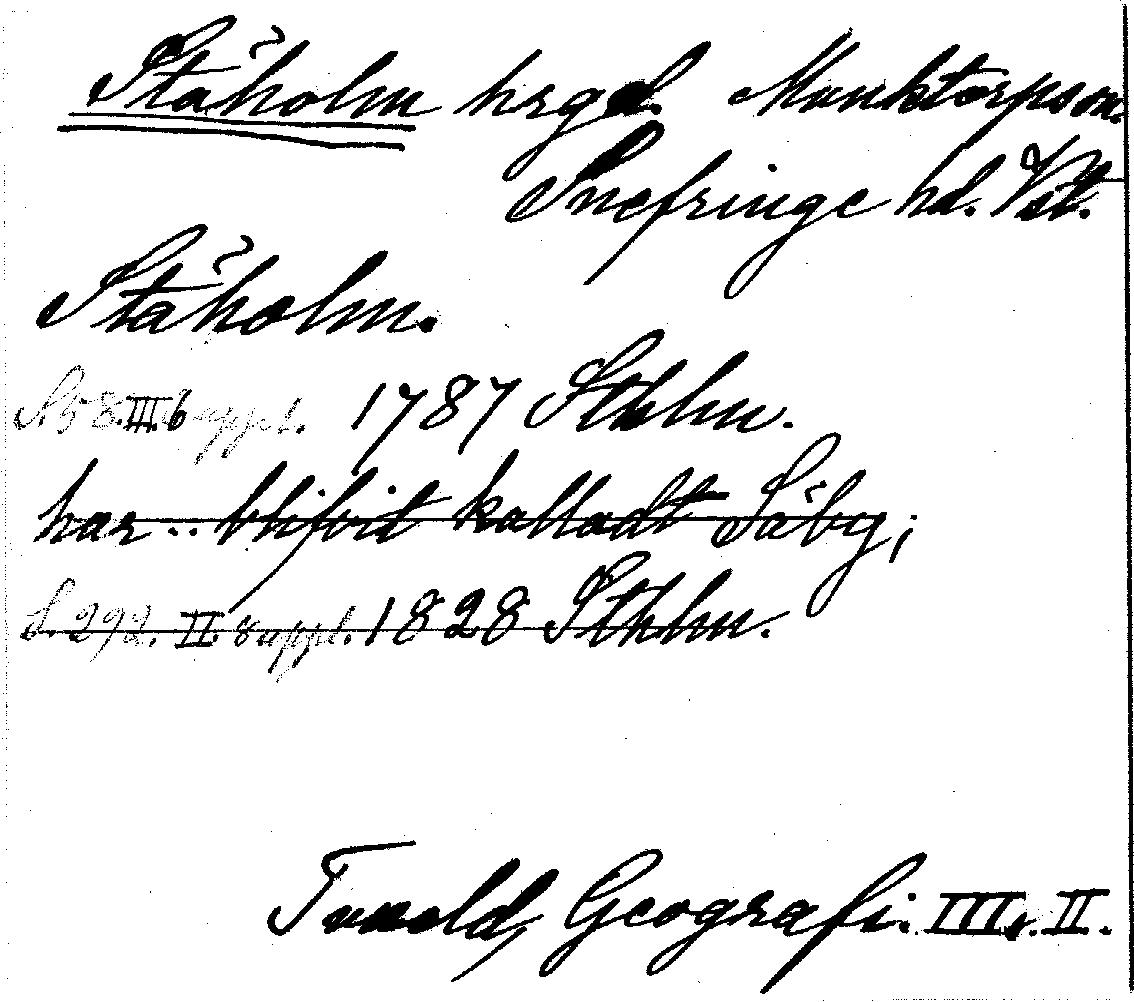 Ståholm hrgd. Munktorps sn.
Snefringe hd. Vstl.
Ståholm.
S. 58. III. 6 uppl. 1787 Sthlm.
har .. blifvit kalladt Säby;
S. 292. II. suppl. 1828 Sthlm.
Tuneld, Geografi. III, II.